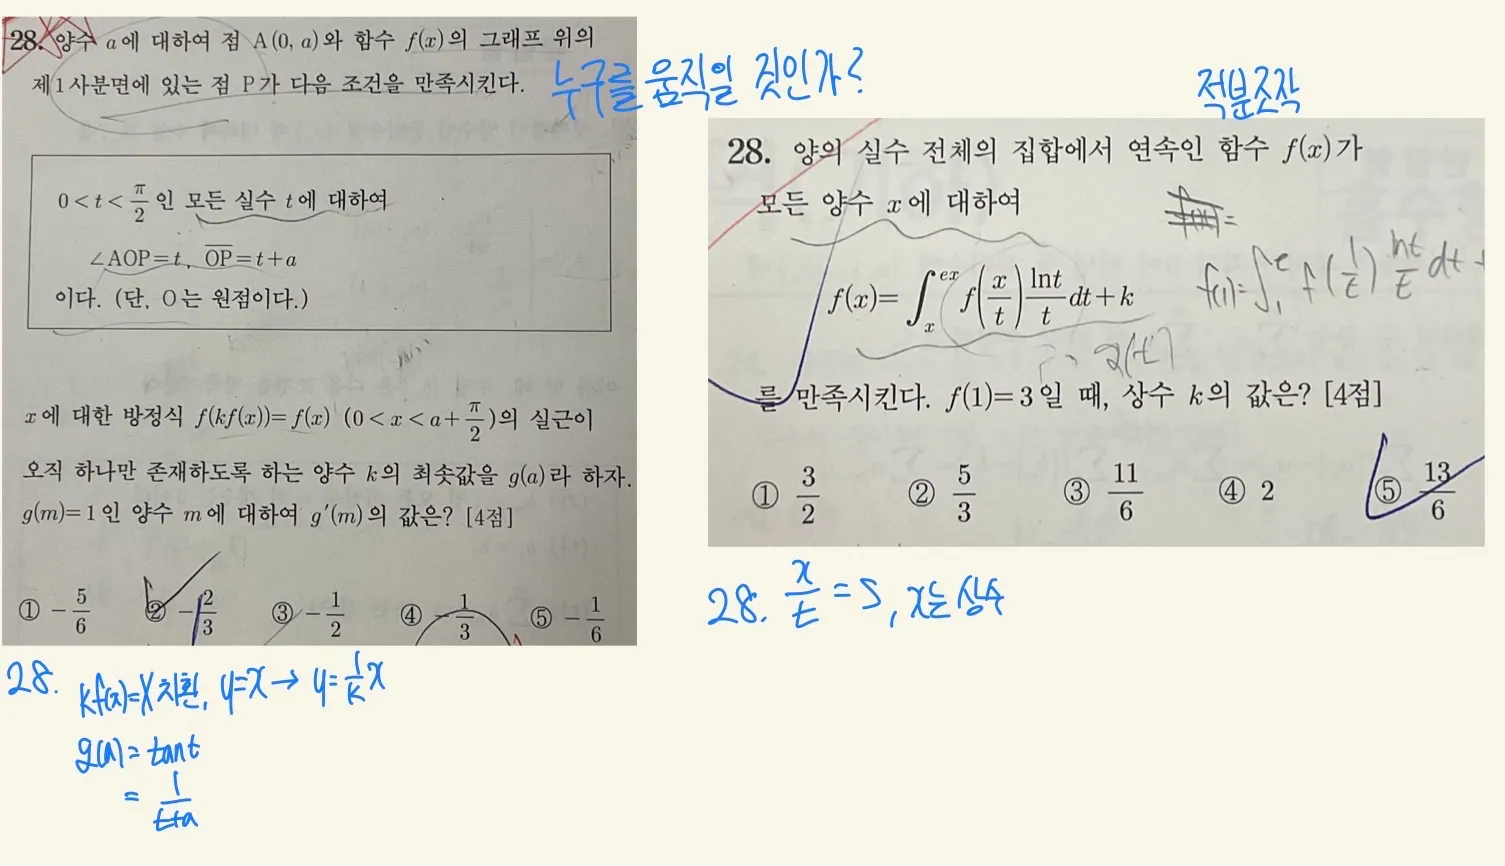 28. 양수 a에 대하여 점 A(0, a)와 함수 f(x)의 그래프 위의
제1사분면에 있는 점 P가 다음 조건을 만족시킨다.
누구를 움직일 것인가?
0<t<π/2인 모든 실수 t에 대하여
∠AOP=t, \overline{OP}=t+a
이다. (단, O는 원점이다.)
x에 대한 방정식 f(kf(x))=f(x) (0<x<a+π/2)의 실근이
오직 하나만 존재하도록 하는 양수 k의 최솟값을 g(a)라 하자.
g(m)=1인 양수 m에 대하여 g′(m)의 값은? [4점]
① -5/6 ② -2/3 ③ -1/2 ④ -1/3 ⑤ -1/6
28. kf(x)=X 치환, y=x → y=1/k x
g(a)= tant
= 1/(t+a)
적분조작
28. 양의 실수 전체의 집합에서 연속인 함수 f(x)가
모든 양수 x에 대하여
f(x)=∫_x^{ex} f(x/t) lnt/t dt+k
f(1)=∫_1^e f(1/t) lnt/t dt +
를 만족시킨다. f(1)=3일 때, 상수 k의 값은? [4점]
① 3/2 ② 5/3 ③ 11/6 ④ 2 ⑤ 13/6
28. x/t = s, x는 상수